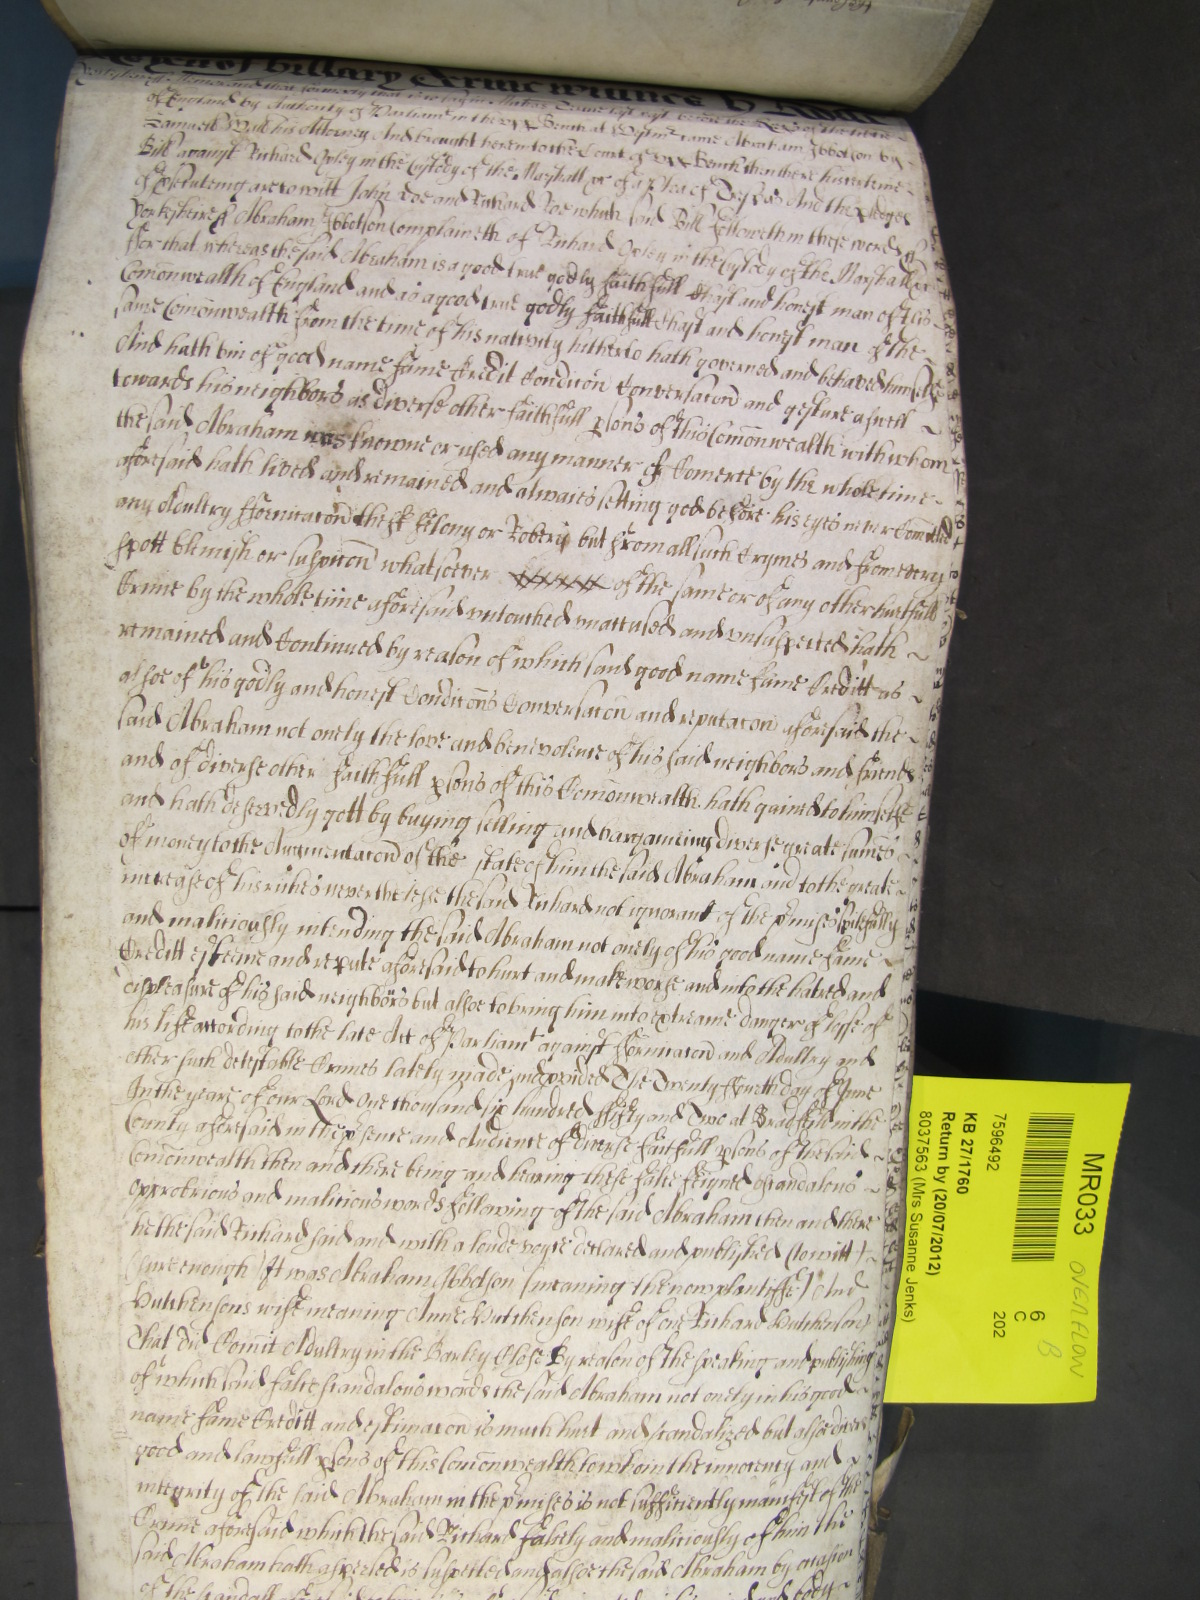 of Hillary Terme
Memorand that
of England by Authority of Parliamt in the upp Bench at Westmr came Abraham Ibbotson by
his Attorney And brought here into the Court of upp Bench then there his certeine
Bill against Richard Oxley in the Custody of the Marshall &c of a plea of Trespas And the pledges
of prosecuteing are to witt John Doe and Richard Roe which said Bill followeth in these words ss
Yorkeshire ss Abraham Ibbotson complaineth of Richard Oxley in the Custody of the Marshall &c
ffor that whereas the said Abraham is a good true godly faithfull Chast and honest man of this
Comonwealth of England and as a good true godly faithfull Chast and honest man of the
same Comonwealth from the time of his nativity hitherto hath governed and behaved himselfe
And hath bin of good name fame Credit Condicon Conversacon and gesture aswell
towards his neighbors as diverse other faithfull psons of this Comonwealth with whom
the said Abraham was knowne or used any manner of Comerce by the whole time
aforesaid hath lived and remained and alwaies setting god before his eyes never Comitted
any Adultry ffornicacon theft felony or Robery but from all such Crymes and from every
spott blemish or suspicon whatsoever of the same or of any other hurtfull
Crime by the whole time aforesaid untouched unaccused and unsuspected hath
remained and Continued by reason of which said good name fame Creditt as
alsoe of his godly and honest Condicons Conversacon and reputacon aforesaid the
said Abraham not onely the love and benevolence of his said neighbors and friends
and of diverse other faithfull psons of this Comonwealth hath gained to himselfe
and hath deservedly gott by buying selling and bargaineing diverse greate sumes
of money to the Augmentacon of the state of him the said Abraham and to the greate
increase of his riches neverthelesse the said Richard not ignorant of the pmises spitefully
and malitiously intending the said Abraham not onely of his good name fame
Creditt esteeme and repute aforesaid to hurt and make worse and into the hatred and
displeasure of his said neighbors but alsoe to bring him into extreame danger of losse of
his life according to the late Act of Parliamt against ffornicacon and Adultry and
other such detestable Crimes lately made and pvided The Twenty ffourth day of June
In the yeare of our Lord One thousand six hundred ffifty and Two at in the
County aforesaid in the psence and Audience of diverse faithfull psons of the said
Comonwealth then and there being and heareing these false feigned scandalous
opprobrious and malitious words following of the said Abraham then and there
he the said Richard said and with a loude voyce declared and published (to witt)
(sure enough) It was Abraham Ibbotson (meaning the now plantiffe) And
Hutchensons wife meaning Anne Hutchenson wife of one Richard Hutchenson)
That did Comit Adultry in the Barley Close By reason of the speaking and publishing
of which said false scandalous words the said Abraham not onely in his good
name fame Creditt and estimacon is much hurt and scandalized but also divers
good and lawfull psons of this Comonwealth to whom the innocency and
integrity of the said Abraham in the pmises is not sufficiently manifest of the
Crime aforesaid which the said Richard falsely and malitiously of him the
said Abraham hath aspersed is suspected and alsoe the said Abraham by occasion
of the scandall aforesaid and body
MR033
OVERFLOW
B
6
C
202
7596492
KB 27/1760
Return by (20/07/2012)
8037563 (Mrs Susanne Jenks)